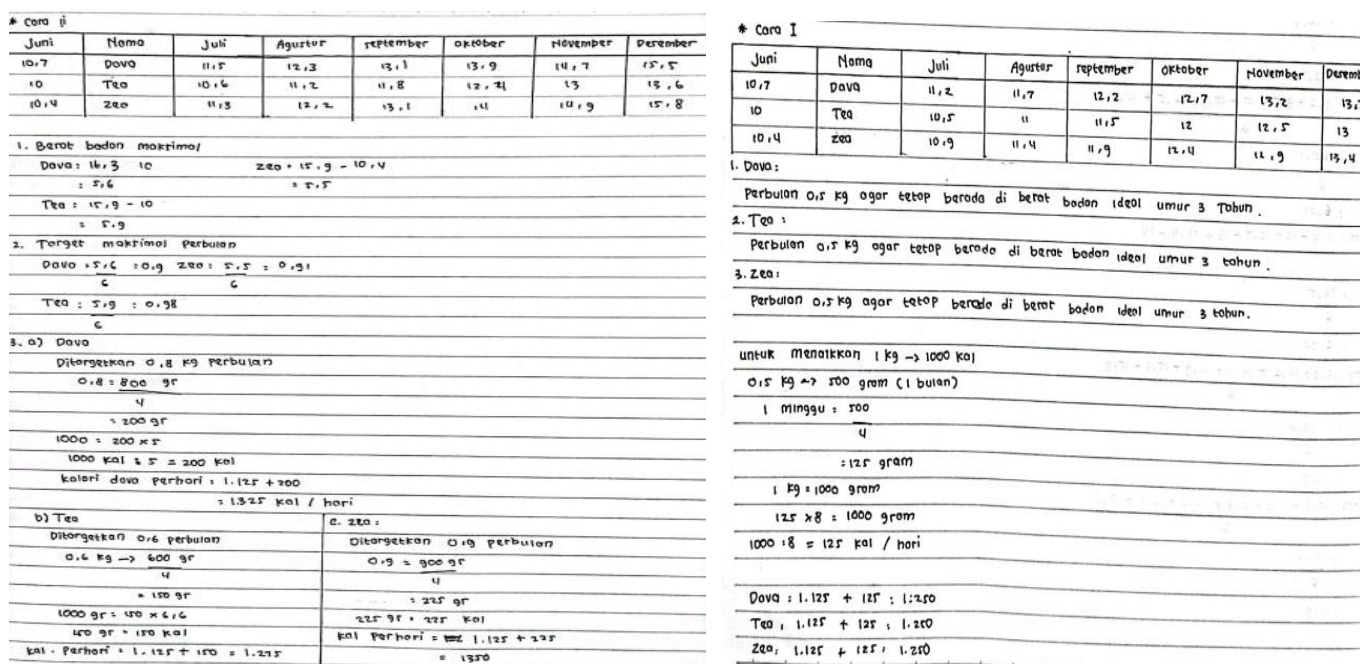 * Cara ii
Juni Nama Juli Agustus September Oktober November Desember
10,7 Dava 11,5 12,3 13,1 13,9 14,7 15,5
10 Tea 10,6 11,2 11,8 12,4 13 13,6
10,4 Zea 11,3 12,2 13,1 14 14,9 15,8
1. Berat badan maksimal
Dava : 16,3 10 Zea = 15,9 - 10,4
: 5,6 = 5,5
Tea : 15,9 - 10
: 5,9
2. Target maksimal perbulan
Dava : 5,6 : 0,9 Zea : 5,5 : 0,91
6 6
Tea : 5,9 : 0,98
6
3. a) Dava
Ditargetkan 0,8 kg perbulan
0,8 = 800 gr
4
= 200 gr
1000 = 200 x 5
1000 kal : 5 = 200 kal
kalori dava perhari = 1.125 + 200
= 1325 kal / hari
b) Tea
Ditargetkan 0,6 perbulan
0,6 kg -> 600 gr
4
= 150 gr
1000 gr = 150 x 6,6
150 gr = 150 kal
kal. perhari = 1.125 + 150 = 1.275
c. Zea :
Ditargetkan 0,9 perbulan
0,9 = 900 gr
4
= 225 gr
225 gr = 225 kal
kal perhari = 1.125 + 225
= 1350
* Cara I
Juni Nama Juli Agustus September Oktober November Desemb
10,7 Dava 11,2 11,7 12,2 12,7 13,2 13,
10 Tea 10,5 11 11,5 12 12,5 13
10,4 Zea 10,9 11,4 11,9 12,4 12,9 13,4
1. Dava :
Perbulan 0,5 kg agar tetap berada di berat badan ideal umur 3 Tahun.
2. Tea :
Perbulan 0,5 kg agar tetap berada di berat badan ideal umur 3 tahun.
3. Zea :
Perbulan 0,5 kg agar tetap berada di berat badan ideal umur 3 tahun.
untuk menaikkan 1 kg -> 1000 kal
0,5 kg -> 500 gram (1 bulan)
1 minggu : 500
4
: 125 gram
1 kg = 1000 gram
125 x 8 = 1000 gram
1000 : 8 = 125 kal / hari
Dava : 1.125 + 125 : 1.250
Tea : 1.125 + 125 : 1.250
Zea : 1.125 + 125 : 1.250